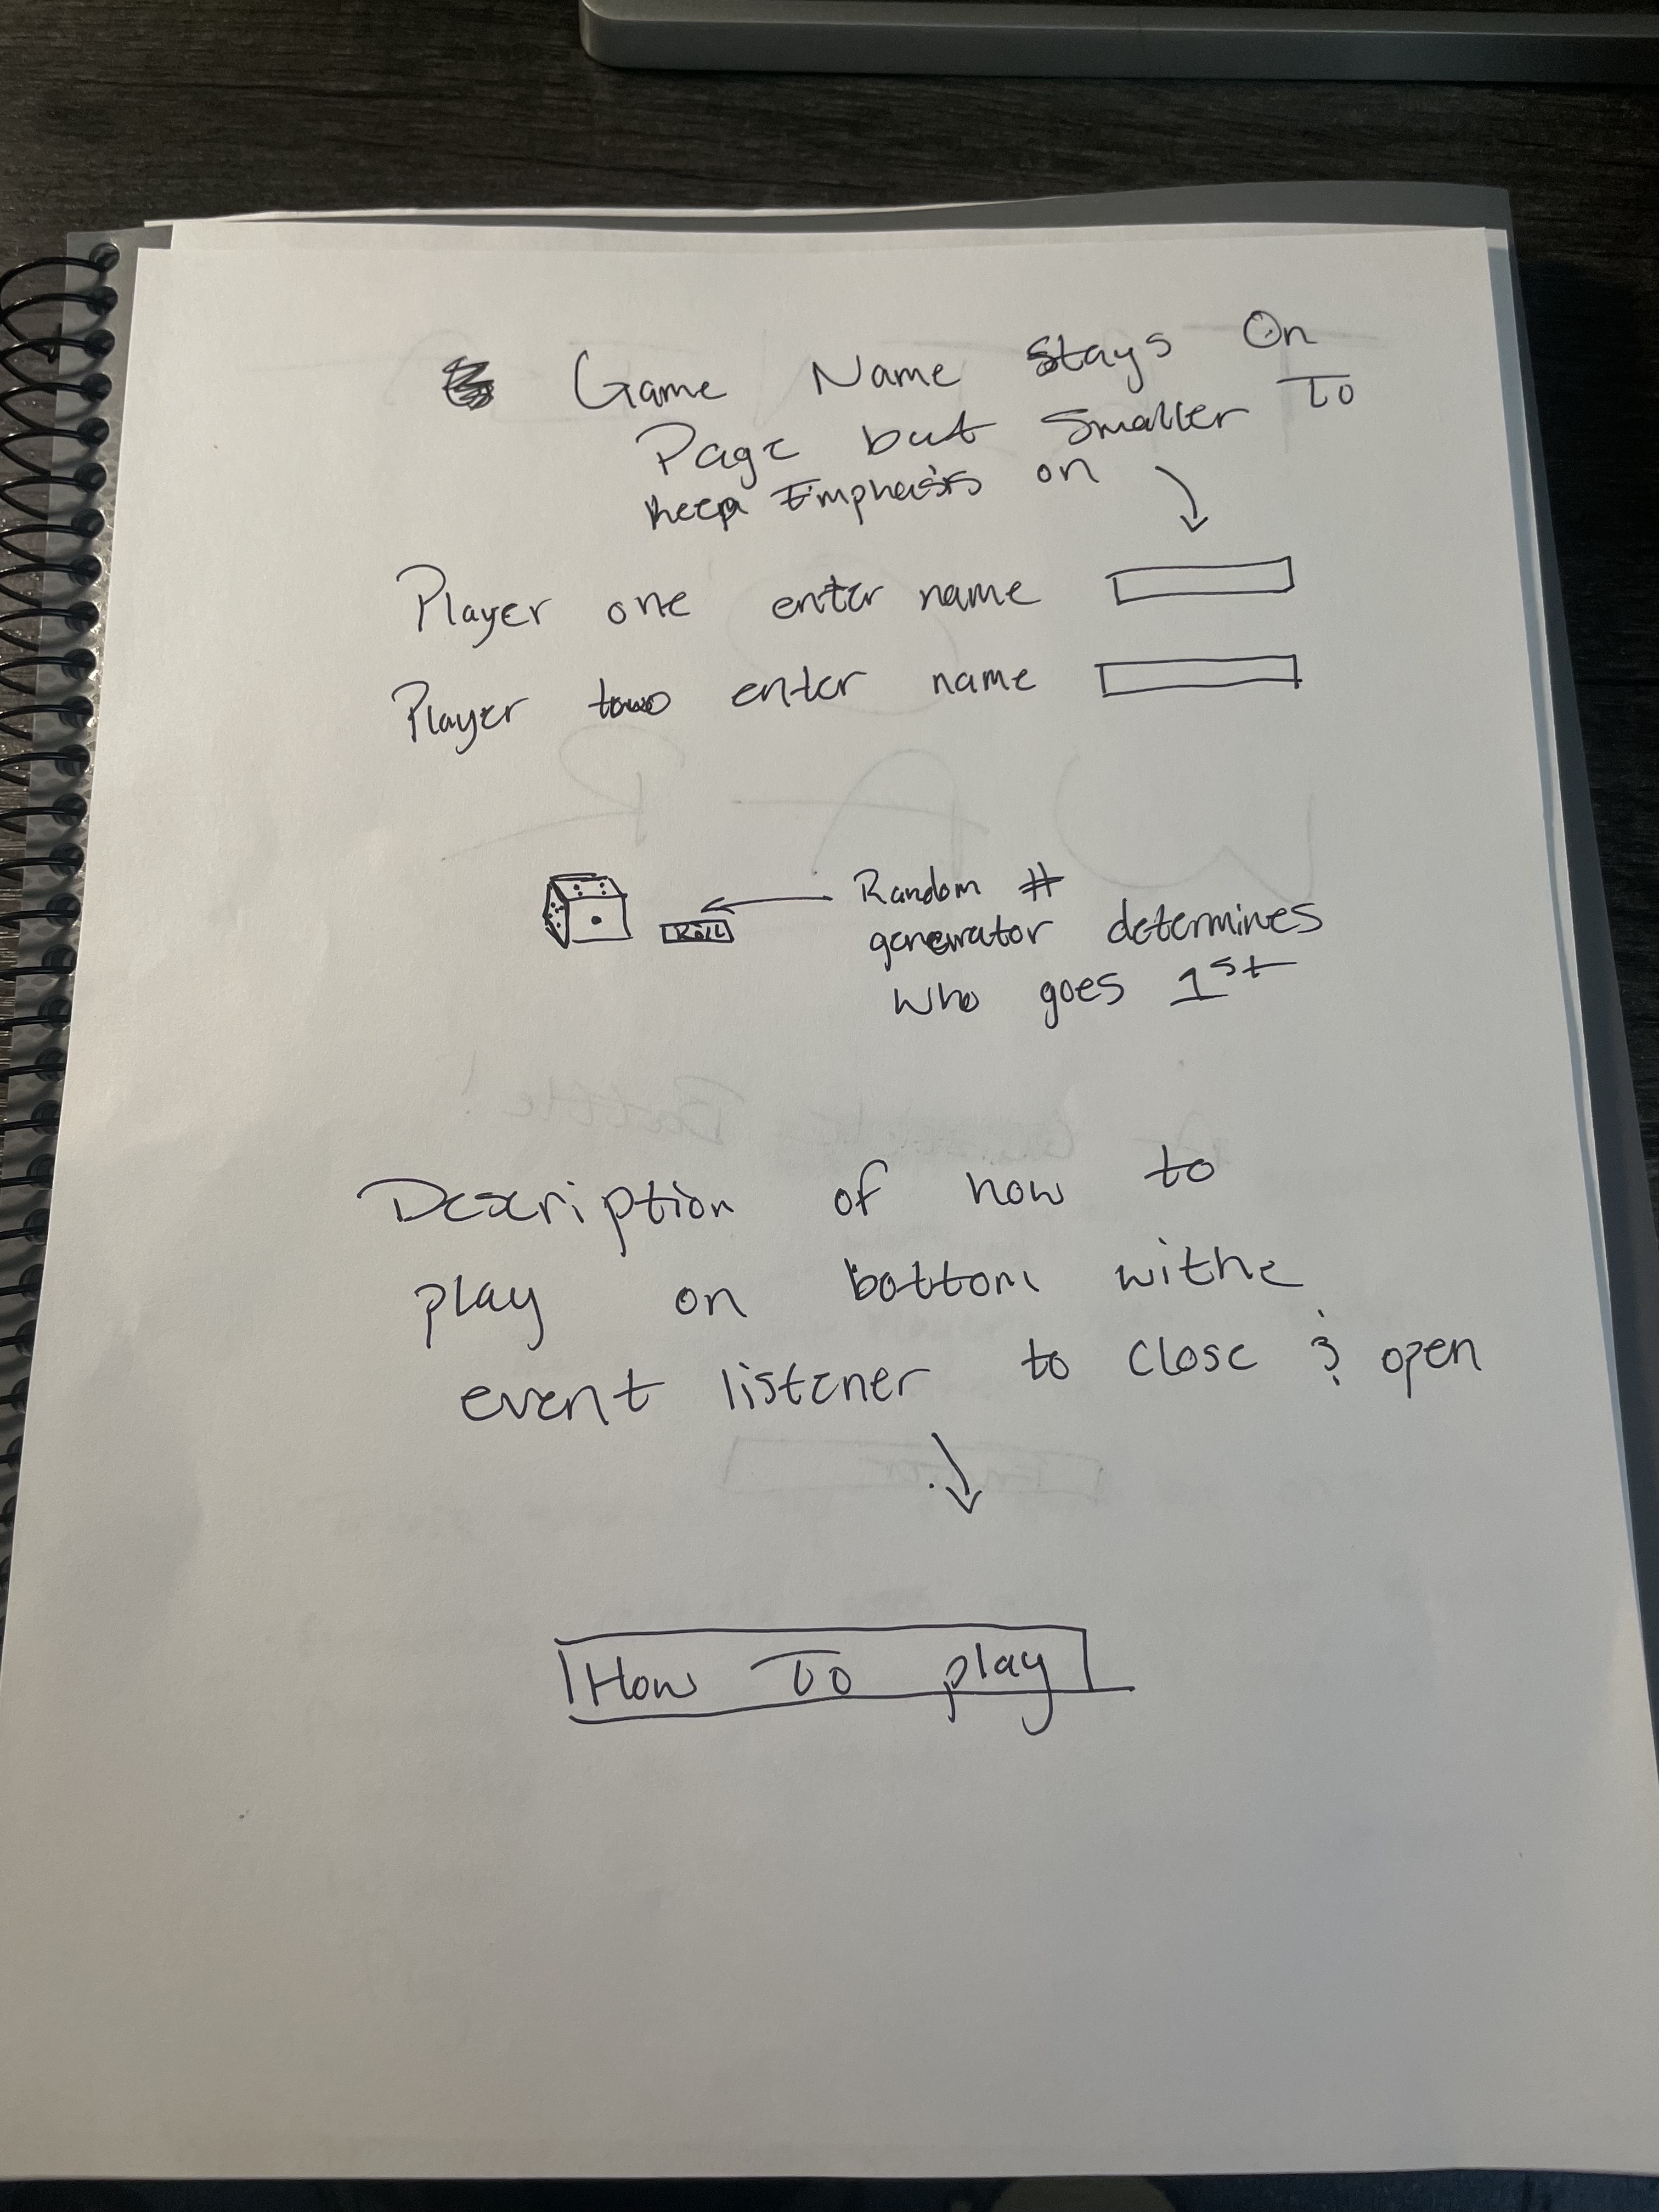 Game Name Stays On
Page but Smaller To
keep Emphasis on
Player one enter name
Player two enter name
Roll
Random #
generator determines
who goes 1st
Description of how to
play on bottom withe
event listener to close & open
How To play